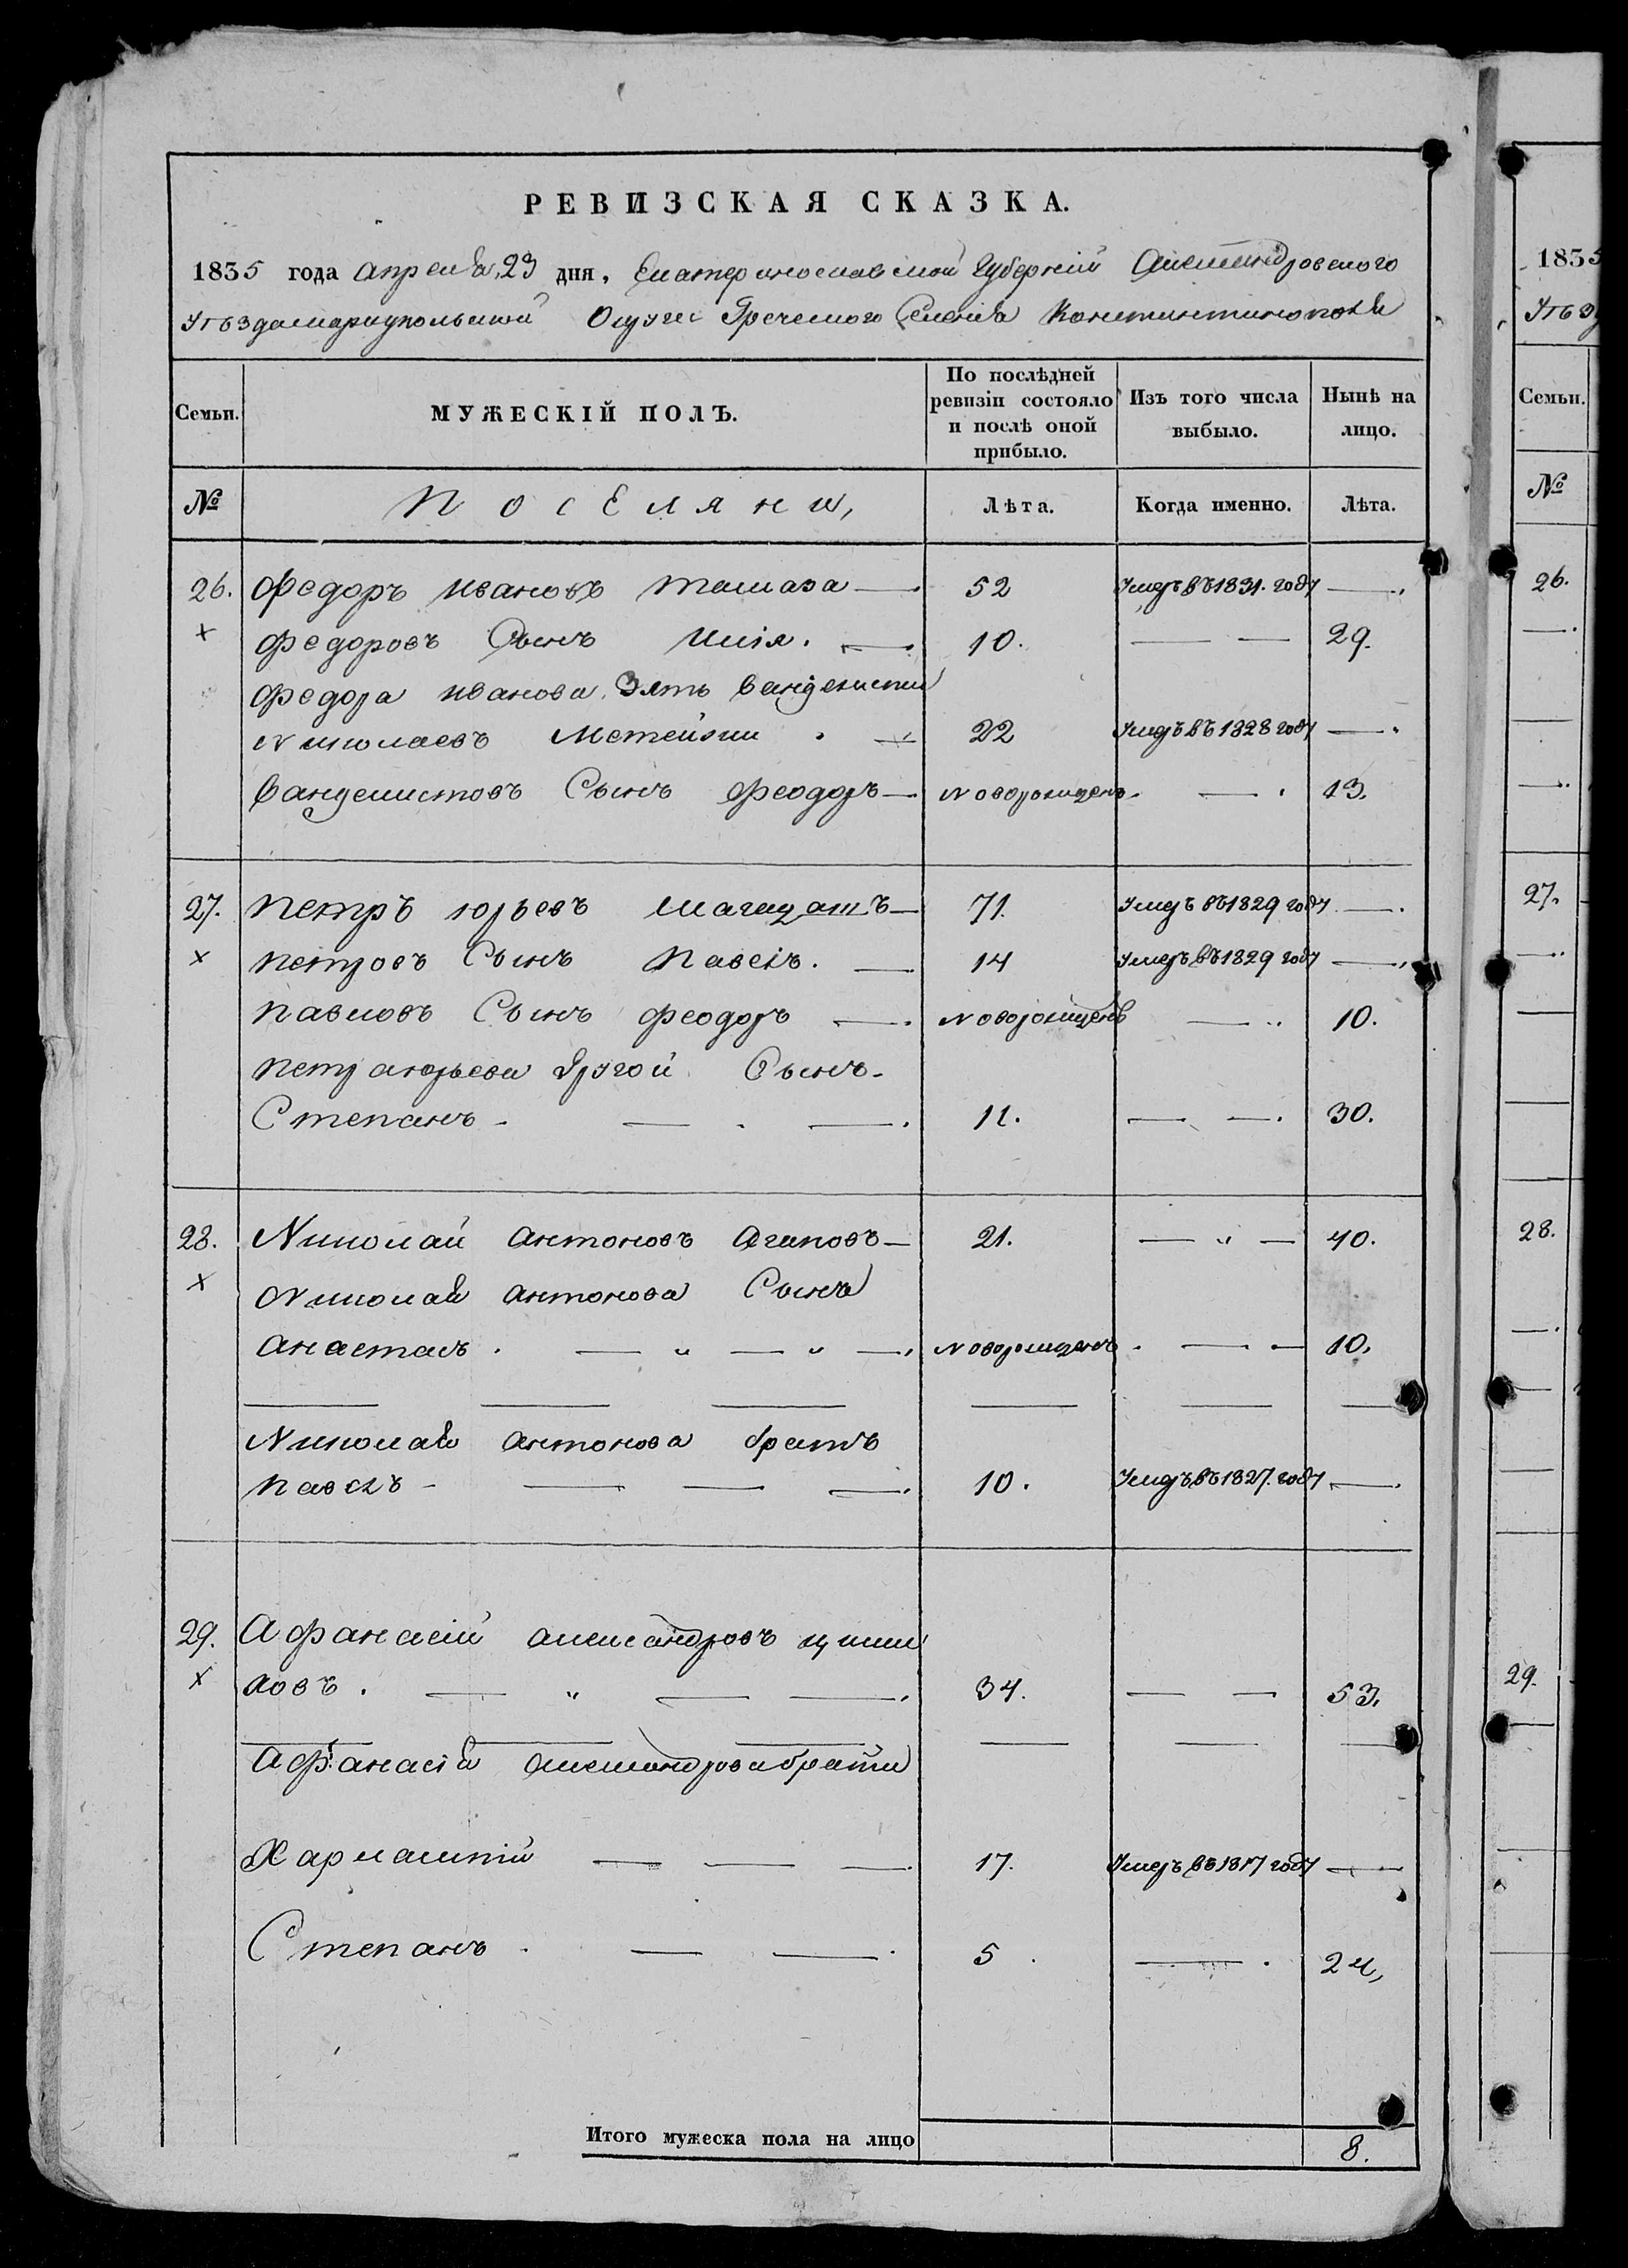 РЕВИЗСКАЯ СКАЗКА.
1835 года апреля 23 дня, Екатеринославской Губерніи Александровского
Уъзда мариупольской Округи Греческого Селенія Константинополя
Семьи. МУЖЕСКІЙ ПОЛЪ. По послѣдней ревизіи состояло и послѣ оной прибыло. Изъ того числа выбыло. Нынѣ на лицо.
№ Поселяни, Лѣта. Когда именно. Лѣта.
26. Федоръ Ивановъ 52 Умеръ въ 1831. году
x Федоровъ Сынъ Илія. 10. 29.
Федора Иванова Зять
Николаевъ 22 Умеръ въ 1828 году
Сынъ Феодоръ Новорожденъ 13.
27. Петръ Юрьевъ 71. Умеръ въ 1829 году
x Петровъ Сынъ Павелъ. 14 Умеръ въ 1829 году
Павловъ Сынъ Феодоръ Новорожденъ 10.
Петра Юрьева другой Сынъ
Степанъ 11. 30.
28. Николай Антоновъ Агаповъ 21. 40.
x Николая Антонова Сынъ
Анастасъ. Новорожденъ 10.
Николая Антонова братъ
Павелъ 10. Умеръ въ 1827. году
29. Афанасій Александровъ
x 34. 53.
Афанасія Александрова братья
Харлампій 17. Умеръ въ 1817 году
Степанъ 5 24,
Итого мужеска пола на лицо 8.
1835
Уъзд
Семьи.
№
26.
27.
28.
29.